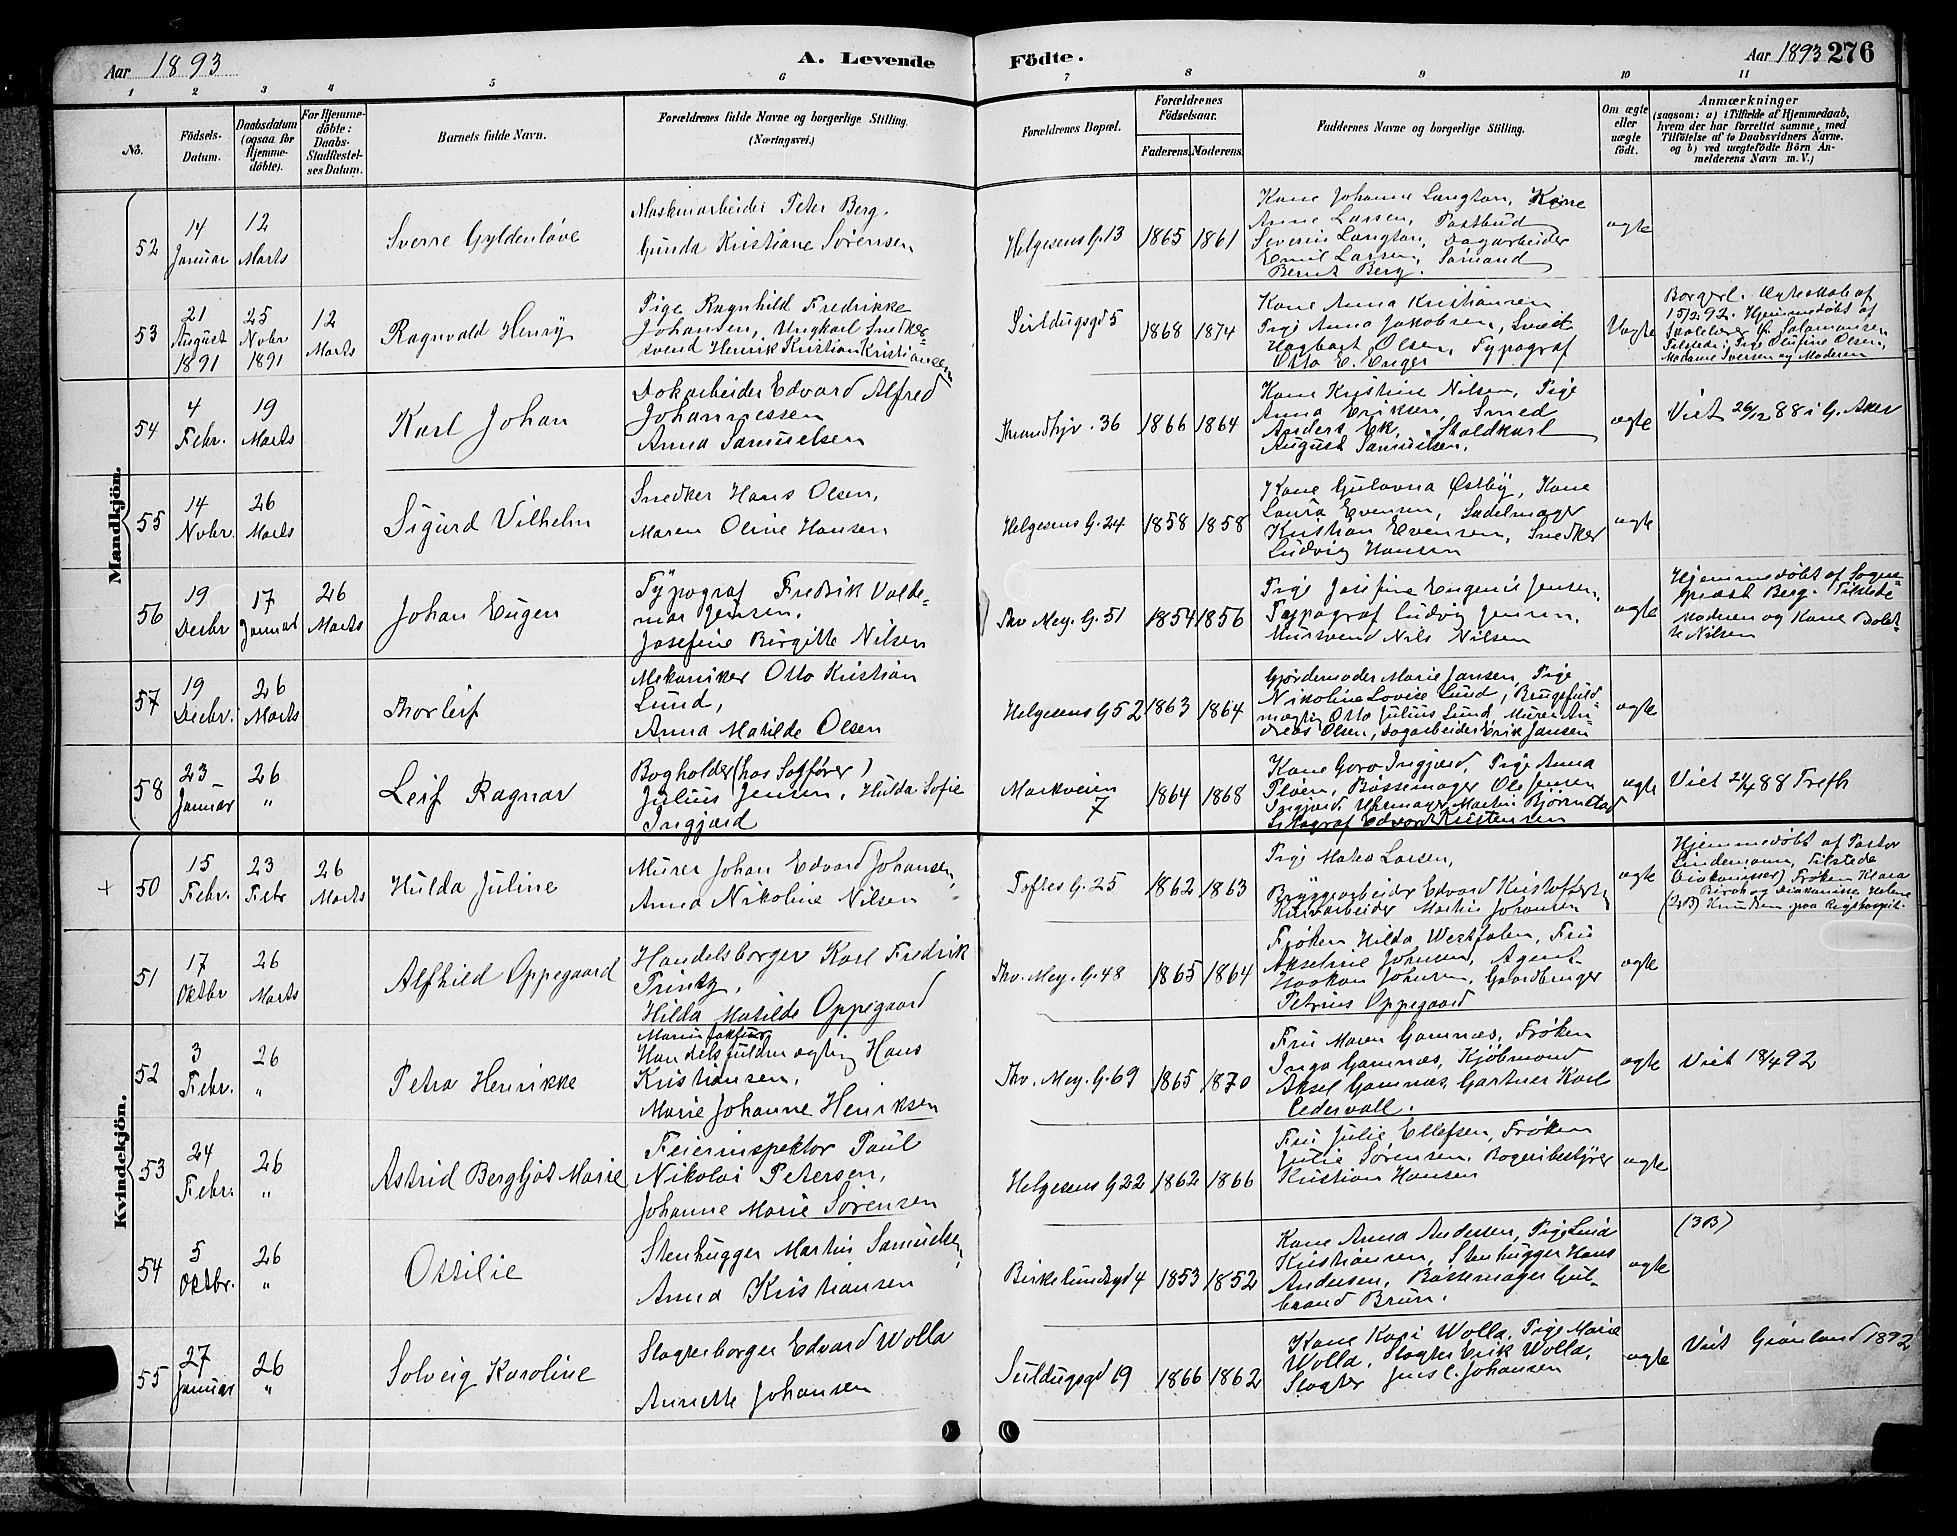 Aar 1893
A. Levende
Födte.
Aar 1893 276
1 2 3 4 5 6 7 8 9 10 11
No.
Födsels-
Datum.
Daabsdatum
(ogsaa för
Hjemme-
döbte).
For Hjemme-
döbte:
Daabs-
Stadfæstel-
ses Datum.
Barnets fulde Navn.
Forældrenes fulde Navne og borgerlige Stilling.
(Næringsvei.)
Forældrenes Bopæl.
Forældrenes
Födselsaar.
Faderens. Moderens.
Faddernes Navne og borgerlige Stilling.
Om ægte
eller
uægte
født.
Anmærkninger
(saasom: a) i Tilfælde af Hjemmedaab,
hvem der har forrettet samme, med
Tilföielse af to Daabsvidners Navne.
og b) ved uægtefödte Börn An-
melderens Navn m. V.)
Mandkjön.
52
14
Januar
12
Marts
Sverre Gyldenløve
Maskinarbeider Peter Berg.
Gunda Kristiane Sörensen
Helgesens G. 13
1865 1861
Kone Johanne Langton, Kone
Anne Larsen, Postbud
Severin Langton, Dagarbeider
Emil Larsen, Sømand
Bernt Berg.
ægte
53
21
August
1891
25
Novbr
1891
12
Marts
Ragnvald Henry
Pige Ragnhild Fredrikke
Johansen, Ungkarl Snedker
svend Henrik Kristian Kristiansen
5
1868 1874
Kone Anna Kristiansen
Pige Anna Jakobsen, Smed
Hagbart Olsen, Typograf
Otto E. Enger
Uægte
Borgerl. Ægteskab af
15/2 92. Hjemmedøbt af
Skolelærer Salamonsen
Tilstede: Pige Olufine Olsen,
Madame Iversen og Moderen
54
4
Febr.
19
Marts
Karl Johan
Dokarbeider Edvard Alfred
Johannessen
Anna Samuelsen
36
1866 1864
Kone Kristine Nilsen, Pige
Anna Eriksen, Smed
Anders Ek, Staldkarl
August Samuelsen.
ægte
Viet 26/12 88 i G. Aker
55
14
Novbr.
26
Marts
Sigurd Vilhelm
Snedker Hans Olsen,
Maren Oline Hansen
Helgesens G. 24
1858 1858
Kone Gulovna Østby, Kone
Laura Evensen, Sadelmager
Kristian Evensen, Snedker
Ludvig Hansen
ægte
56
19
Decbr
17
Januar
26
Marts
Johan Eugen
Typograf Fredrik Valde-
mar Jensen,
Josefine Birgitte Nilsen
Thv. Mey. G. 51
1854 1856
Pige Josefine Eugenie Jensen,
Typograf Ludvig Jensen,
Mursvend Nils Nilsen
ægte
Hjemmedøbt af Sogne-
præst Berg. Tilstede
Moderen og Kone
Nilsen
57
19
Decbr.
26
Marts
Thorleif
Mekaniker Otto Kristian
Lund,
Anna Matilde Olsen
Helgesens G 52
1863 1864
Gjordemoder Marie Jansen, Pige
Nikoline Lovise Lund, Brugsfuld-
mægtig Otto Julius Lund, Murer An-
dreas Olsen, Dagarbeider Erik Jansen
ægte
58
23
Januar
26
"
Leif Ragnar
Bogholder (hos Sagfører)
Julius Jensen, Hulda Sofie
Ingjærd
Markveien
7
1864 1868
Kone Goro Ingjærd, Pige Anna
Ploen, Bøssemager Ole Jensen
Ingjærd, Uhrmager Martin Bjørnstad
Litograf Edvard Kristensen
ægte
Viet 24/4 88 Trefh
Kvindekjön.
+
50
15
Febr.
23
Febr
26
Marts
Hulda Juline
Murer Johan Edvard Johansen,
Anna Nikoline Nilsen
Toftes G. 25
1862 1863
Pige Mater Larsen,
Bryggearbeider Edvard Kristoffersen
Martin Johansen
ægte
Hjemmedøbt af Pastor
Lindemann, Tilstede
Frøken Klara
og Diakonisse Helene
(2B) Knudsen paa Rigshospit.
51
17
Oktbr
26
Marts
Alfhild Oppegaard
Handelsborger Karl Fredrik
Printz,
Hilda Matilde Oppegaard
Thv. Mey. G. 48
1865 1864
Frøken Hilda Westfalen, Fru
Akseline Johnsen, Agent
Haakon Johnsen, Gaardbruger
Petrius Oppegaard
ægte
52
3
Febr.
26
"
Petra Henrikke
Handelsfuldmægtig Hans
Kristiansen,
Marie Johanne Henriksen
Thv. Mey. G. 69
1865 1870
Fru Maren Gamnæs, Frøken
Inga Gamnæs, Kjøbmand
Aksel Gamnæs, Gartner Karl
Cedervall.
ægte
Viet 18/4 92
53
24
Febr.
26
"
Astrid Bergljot Marie
Feierinspektor Paul
Nikolai Petersen,
Johanne Marie Sørensen
Helgesens G 22
1862 1866
Fru Julie Ellefsen, Frøken
Julie Sørensen, Bageribestyrer
Kristian Hansen
ægte
54
5
Oktbr.
26
"
Ottilie
Stenhugger Martin Samuelsen,
Anna Kristiansen
Birkelundsgd 4
1853 1852
Kone Anna Andersen, Pige Lina
Kristiansen, Stenhugger Hans
Andersen, Bøssemager Gul-
brand Brun.
ægte
(3B)
55
27
Januar
26
"
Solveig Karoline
Slagterborger Edvard Wolla
Annette Johansen
19
1866 1862
Kone Kari Wolla, Pige Marie
Wolla, Slagter Erik Wolla,
Slagter Jens C. Johansen
ægte
Viet Grønland 1892